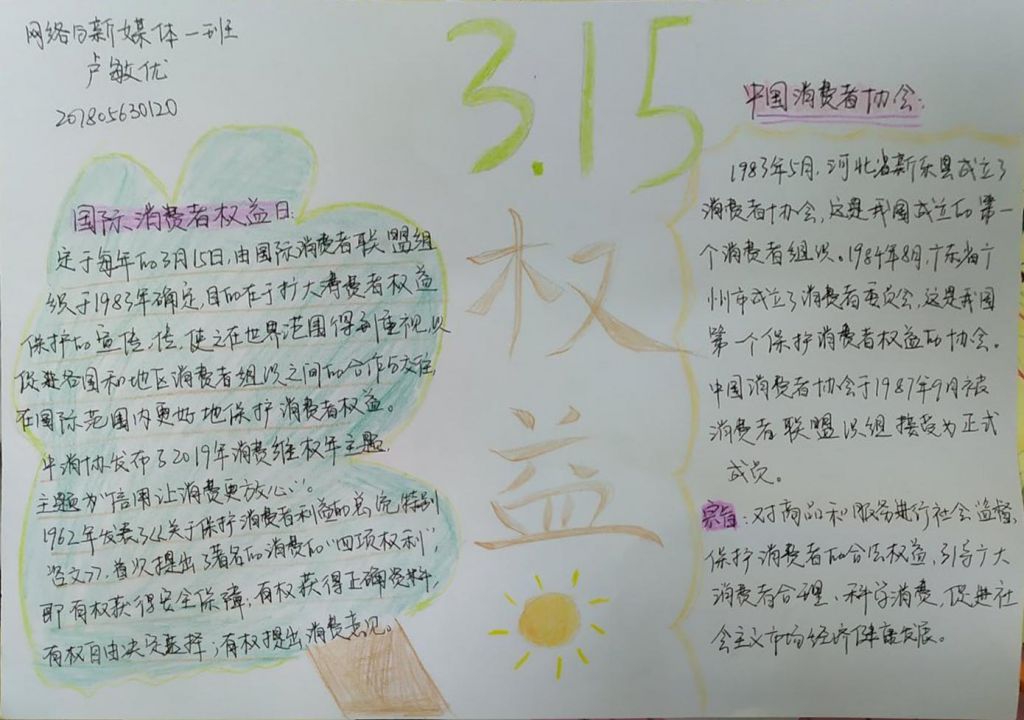 网络与新媒体一班
卢敏优
201805630120
3.15
权
益
国际消费者权益日:
定于每年的3月15日,由国际消费者联盟组
织于1983年确定,目的在于扩大消费者权益
保护的宣传,使之在世界范围得到重视,以
促进各国和地区消费者组织之间的合作与交往,
在国际范围内更好地保护消费者权益。
中消协发布了2019年消费维权年主题,
主题为“信用让消费更放心”。
1962年发表了《关于保护消费者利益的总统特别
咨文》,首次提出了著名的消费的“四项权利”,
即有权获得安全保障;有权获得正确资料;
有权自由决定选择;有权提出消费意见。
中国消费者协会:
1983年5月,河北省新乐县成立了
消费者协会,这是我国成立的第一
个消费者组织。1984年8月,广东省广
州市成立了消费者委员会,这是我国
第一个保护消费者权益的协会。
中国消费者协会于1987年9月被
消费者联盟织组接受为正式
成员。
宗旨:对商品和服务进行社会监督,
保护消费者的合法权益,引导广大
消费者合理、科学消费,促进社
会主义市场经济健康发展。